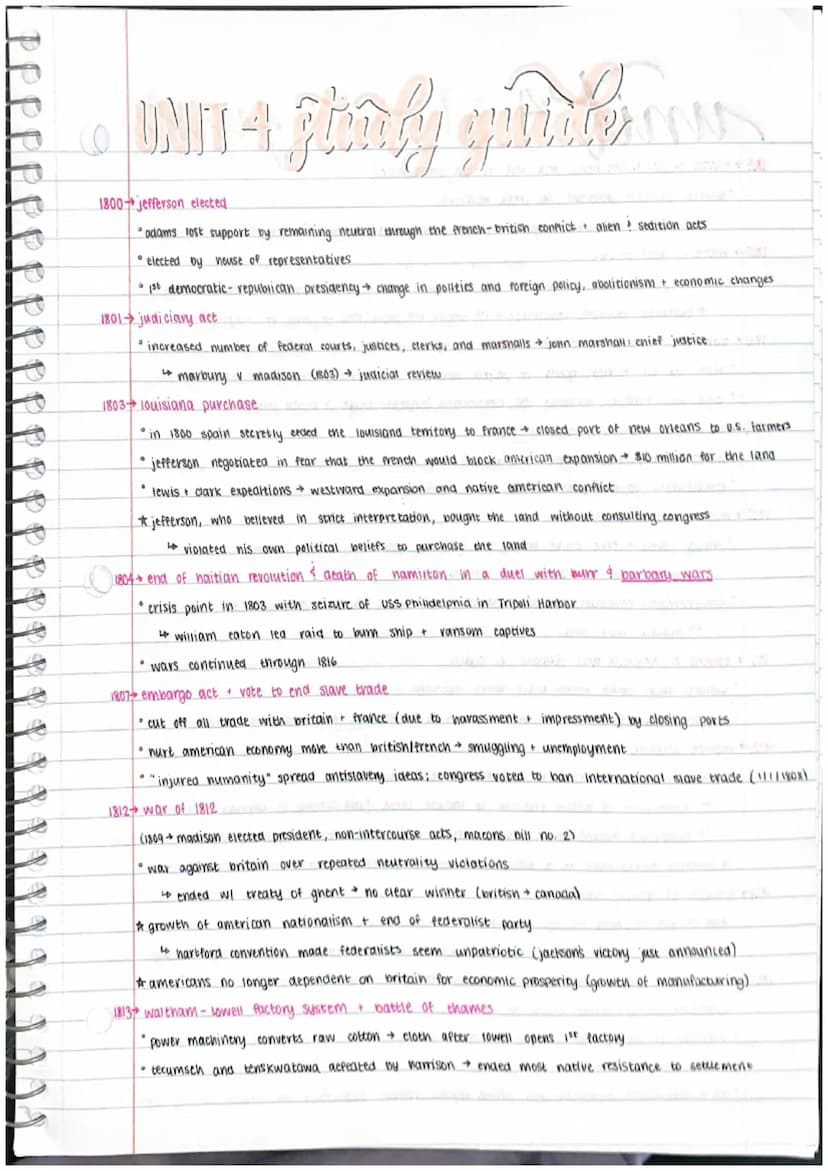 UNIT 4 study guide
1800→ jefferson elected
° adams lost support by remaining neutral through the french-british conflict + alien & sedition acts
° elected by house of representatives
° 1st democratic-republican presidency → change in politics and foreign policy, abolitionism + economic changes
1801→ judiciary act
° increased number of federal courts, justices, clerks, and marshalls → john marshall: chief justice
↳ marbury v madison (1803) → judicial review
1803→ louisiana purchase
° in 1800 spain secretly ceded the louisiana territory to france → closed port of new orleans to u.s. farmers
° jefferson negotiated in fear that the french would block american expansion → $10 million for the land
° lewis + clark expeditions → westward expansion and native american conflict
★ jefferson, who believed in strict interpretation, bought the land without consulting congress
↳ violated his own political beliefs to purchase the land
1804→ end of haitian revolution & death of hamilton in a duel with burr & barbary wars
° crisis point in 1803 with seizure of USS Philidelphia in Tripoli Harbor
↳ william eaton led raid to burn ship + ransom captives
° wars continued through 1816
1807→ embargo act + vote to end slave trade
° cut off all trade with britain + france (due to harassment + impressment) by closing ports
° hurt american economy more than british/french → smuggling + unemployment
° "injured humanity" spread antislavery ideas; congress voted to ban international slave trade (1/1/1808)
1812→ war of 1812
(1809→ madison elected president, non-intercourse acts, macons bill no. 2)
° war against britain over repeated neutrality violations
↳ ended w/ treaty of ghent → no clear winner (british → canada)
★ growth of american nationalism + end of federalist party
↳ hartford convention made federalists seem unpatriotic (jackson's victory just announced)
★ americans no longer dependent on britain for economic prosperity (growth of manufacturing)
1813→ waltham-lowell factory system + battle of thames
° power machinery converts raw cotton → cloth after lowell opens 1st factory
° tecumseh and tenskwatawa defeated by harrison → ended most native resistance to settlement